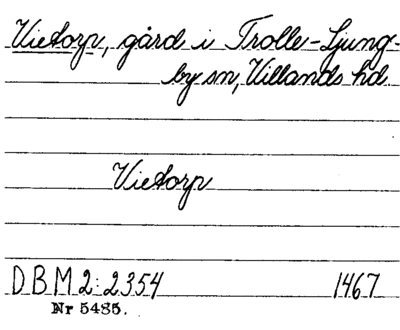 Vietorp, gård i Trolle-Ljung-
by sn, Villands hd.
Vietorp
DBM 2:2354 1467
Nr 5485.